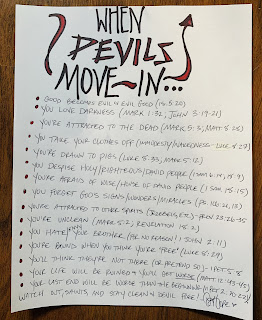 WHEN
DEVILS
MOVE-IN...
GOOD BECOMES EVIL & EVIL GOOD (IS 5:20)
YOU LOVE DARKNESS (MARK 1:32, JOHN 3:19-21)
YOU'RE ATTRACTED TO THE DEAD (MARK 5:3, MATT 8:28)
YOU TAKE YOUR CLOTHES OFF (IMMODESTY/NAKEDNESS - LUKE 8:27)
YOU'RE DRAWN TO PIGS (LUKE 8:33, MARK 5:12)
YOU DESPISE HOLY/RIGHTEOUS/DAVID PEOPLE (1 SAM 16:14, 18:9)
YOU'RE AFRAID OF WISE/HOME OF DAVID PEOPLE (1 SAM 18:15)
YOU FORGET GOD'S SIGNS/WONDERS/MIRACLES (PS 106:21, 28)
YOU'RE ATTRACTED TO OTHER SPIRITS - PROV 23:26-35
YOU'RE UNCLEAN (MARK 5:2; REVELATION 18:2)
YOU HATE YOUR BROTHER (FOR NO REASON) 1 JOHN 2:11
YOU'RE BOUND WHEN YOU THINK YOU'RE "FREE" (LUKE 8:29)
YOU'LL THINK THEY'RE NOT THERE (OR PRETEND SO) - 1 PET 5:8
YOUR LIFE WILL BE RUINED & YOU'LL GET WORSE (MATT 12:43-45)
YOUR LAST END WILL BE WORSE THAN THE BEGINNING (2 PET 2:20-22)
WATCH OUT, SAINTS, AND STAY CLEAN & DEVIL FREE!